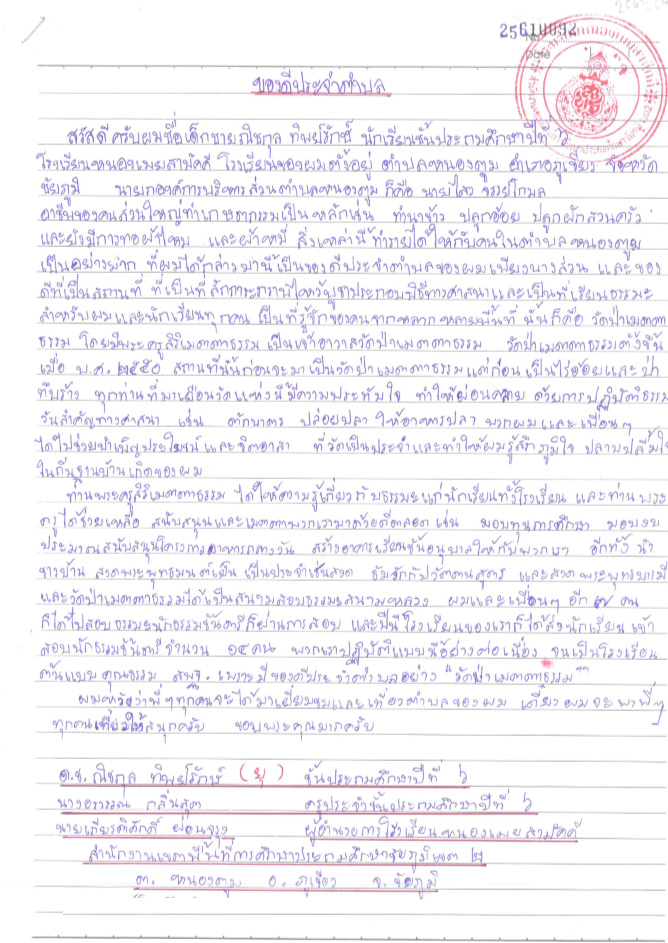 25610092
No
Date
ของดีประจำตำบล
สวัสดีครับผมชื่อเด็กชายณัชกุล ทิพย์รักษ์ นักเรียนชั้นประถมศึกษาปีที่ ๖
โรงเรียนหนองเมยสามัคคี โรงเรียนของผมตั้งอยู่ ตำบลหนองตูม อำเภอภูเขียว จังหวัด
ชัยภูมิ นายกองค์การบริหารส่วนตำบลหนองตูม ก็คือ นายไสว
อาชีพของคนส่วนใหญ่ทำเกษตรกรรมเป็นหลักเช่น ทำนาข้าว ปลูกอ้อย ปลูกผักสวนครัว
และยังมีการทอผ้าไหม และผ้าหมี่ สิ่งเหล่านี้ทำรายได้ให้กับคนในตำบลหนองตูม
เป็นอย่างมาก ที่ผมได้กล่าวมานี้เป็นของดีประจำตำบลของผมเพียงบางส่วน และของ
ดีที่เป็นสถานที่ ที่เป็นที่สักการะกราบไหว้บูชาประกอบพิธีทางศาสนาและเป็นที่เรียนธรรมะ
สำหรับผมและนักเรียนทุกคน เป็นที่รู้จักของคนจากหลากหลายพื้นที่ นั้นก็คือ วัดป่าเมตตา
ธรรม โดยมีพระครูสิริเมตตาธรรม เป็นเจ้าอาวาสวัดป่าเมตตาธรรม วัดป่าเมตตาธรรมตั้งขึ้น
เมื่อ พ.ศ. ๒๕๕๐ สถานที่นี้นั้นก่อนจะมาเป็นวัดป่าเมตตาธรรมแต่ก่อนเป็นไร่อ้อยและป่า
ทึบร้าง ทุกท่านที่มาเยือนวัดแห่งนี้มีความประทับใจ ทำให้ผ่อนคลาย ด้วยการปฏิบัติธรรม
วันสำคัญทางศาสนา เช่น ตักบาตร ปล่อยปลา ให้อาหารปลา พวกผมและเพื่อนๆ
ได้ไปช่วยบำเพ็ญประโยชน์และจิตอาสา ที่วัดเป็นประจำและทำให้ผมรู้สึกภูมิใจ ปลาบปลื้มใจ
ในถิ่นฐานบ้านเกิดของผม
ท่านพระครูสิริเมตตาธรรม ได้ให้ความรู้เกี่ยวกับธรรมะแก่นักเรียนทั้งโรงเรียน และท่านพระ
ครูได้ช่วยเหลือ สนับสนุนและเมตตาพวกเรามาด้วยดีตลอด เช่น มอบทุนการศึกษา มอบงบ
ประมาณสนับสนุนโครงการอาหารกลางวัน สร้างอาคารเรียนชั้นอนุบาลให้กับพวกเรา อีกทั้ง นำ
ชาวบ้าน สวดพระพุทธมนต์เย็น เป็นประจำเช่นสวด ธัมจักกัปวัตตนสูตร และสวด พระพุทธบารมี
และวัดป่าเมตตาธรรมได้เป็นสนามสอบธรรมะสนามหลวง ผมและเพื่อนๆ อีก ๗ คน
ก็ได้ไปสอบธรรมะนักธรรมชั้นตรีก็ผ่านการสอบ และปีนี้โรงเรียนของเราก็ได้ส่งนักเรียน เข้า
สอบนักธรรมชั้นตรีจำนวน ๑๔ คน พวกเราปฏิบัติแบบนี้อย่างต่อเนื่อง จนเป็นโรงเรียน
ต้นแบบ คุณธรรม สพฐ. เพราะมีของดีประจำตำบลอย่าง "วัดป่าเมตตาธรรม"
ผมหวังว่าพี่ๆทุกคนจะได้มาเยี่ยมชมและเที่ยวตำบลของผม เดี๋ยวผมจะพาพี่ๆ
ทุกคนเที่ยวให้สนุกครับ ขอบพระคุณมากครับ
ด.ช. ณัชกุล ทิพย์รักษ์ ชั้นประถมศึกษาปีที่ ๖
นางอาวรรณ กลิ่นสุด ครูประจำชั้นประถมศึกษาปีที่ ๖
นายเกียรติศักดิ์ ผ่อนจรุง ผู้อำนวยการโรงเรียนหนองเมยสามัคคี
สำนักงานเขตพื้นที่การศึกษาประถมศึกษาชัยภูมิเขต ๒
ต. หนองตูม อ. ภูเขียว จ. ชัยภูมิ